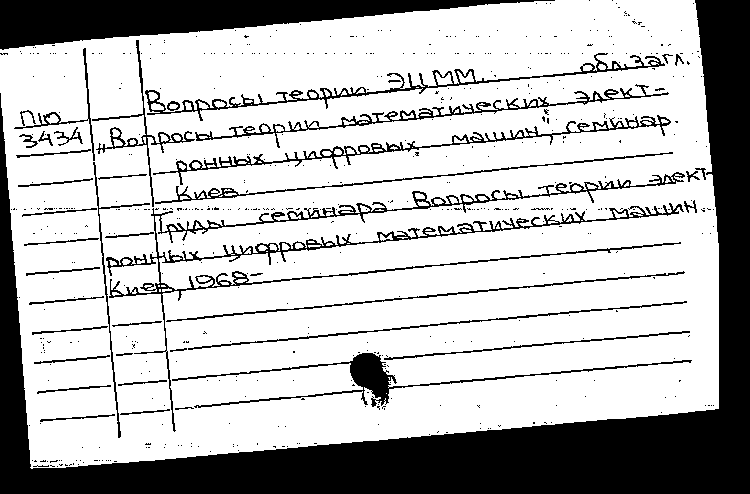 Вопросы теории ЭЦММ. обл. загл.
Пю
3434 „Вопросы теории математических элект=
ронных цифровых машин", семинар.
Киев.
Труды семинара Вопросы теории элект-
ронных цифровых математических машин.
Киев, 1968-